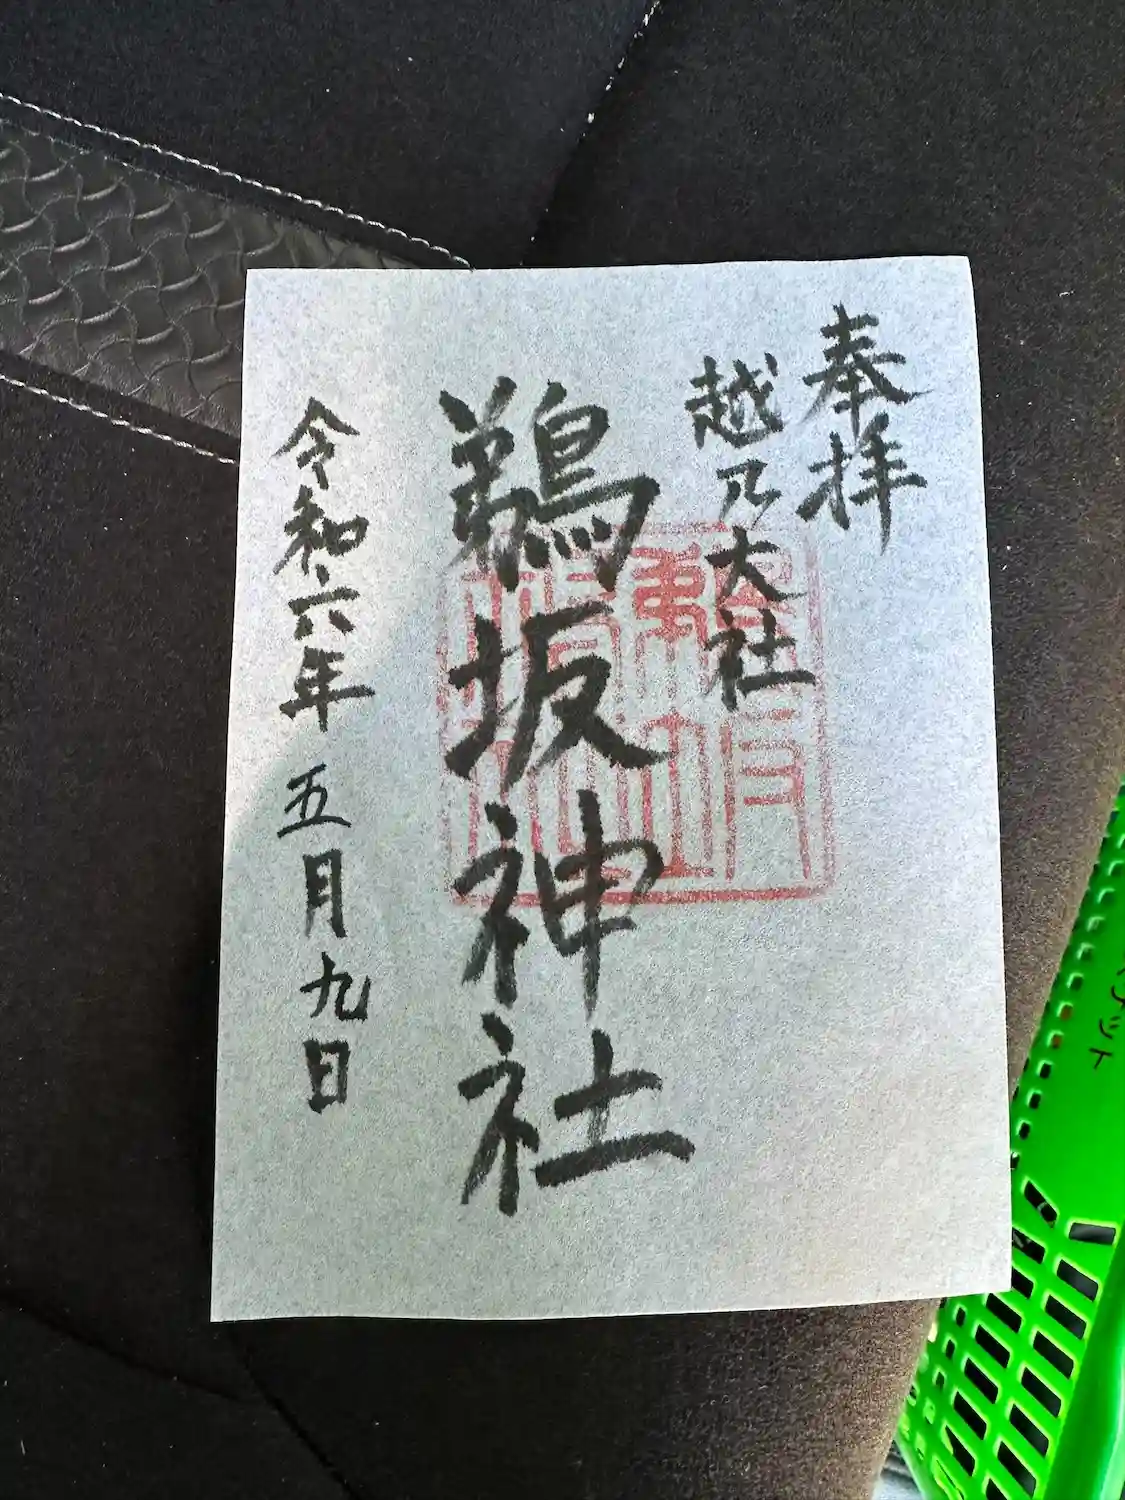 奉拝
越乃大社
鵜坂神社
令和六年五月九日